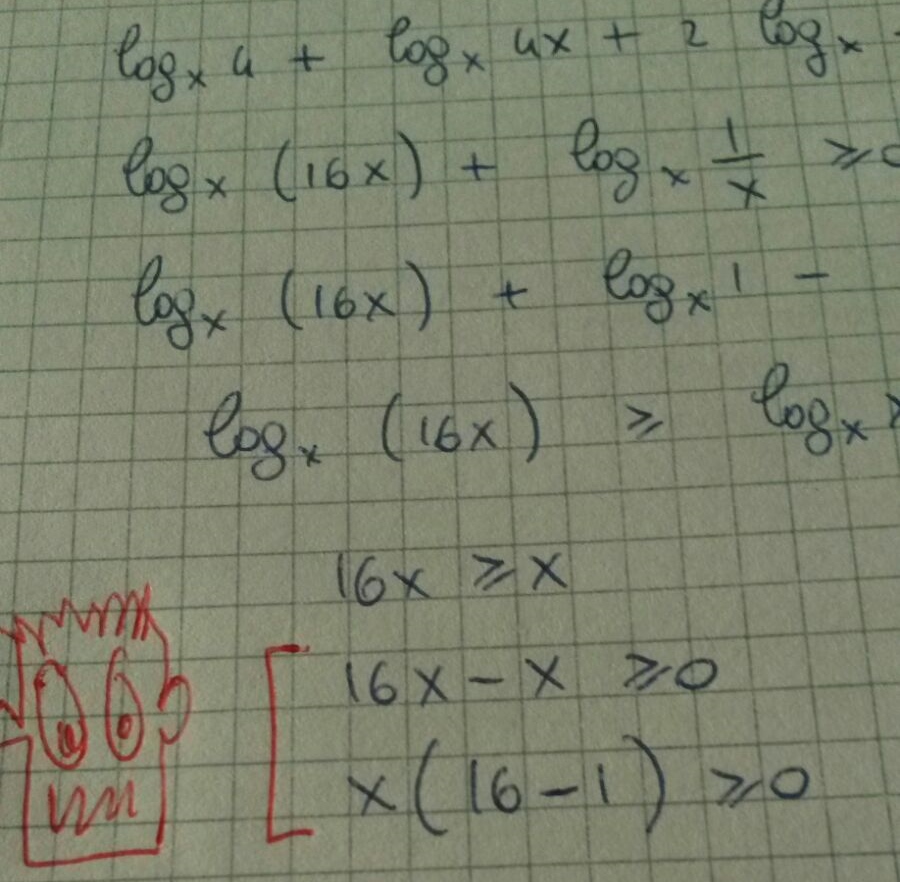 logₓ 4 + logₓ 4x + 2 logₓ
logₓ (16x) + logₓ 1/x ≥ 0
logₓ (16x) + logₓ 1 −
logₓ (16x) ≥ logₓ
16x ≥ x
16x − x ≥ 0
x(16 − 1) ≥ 0